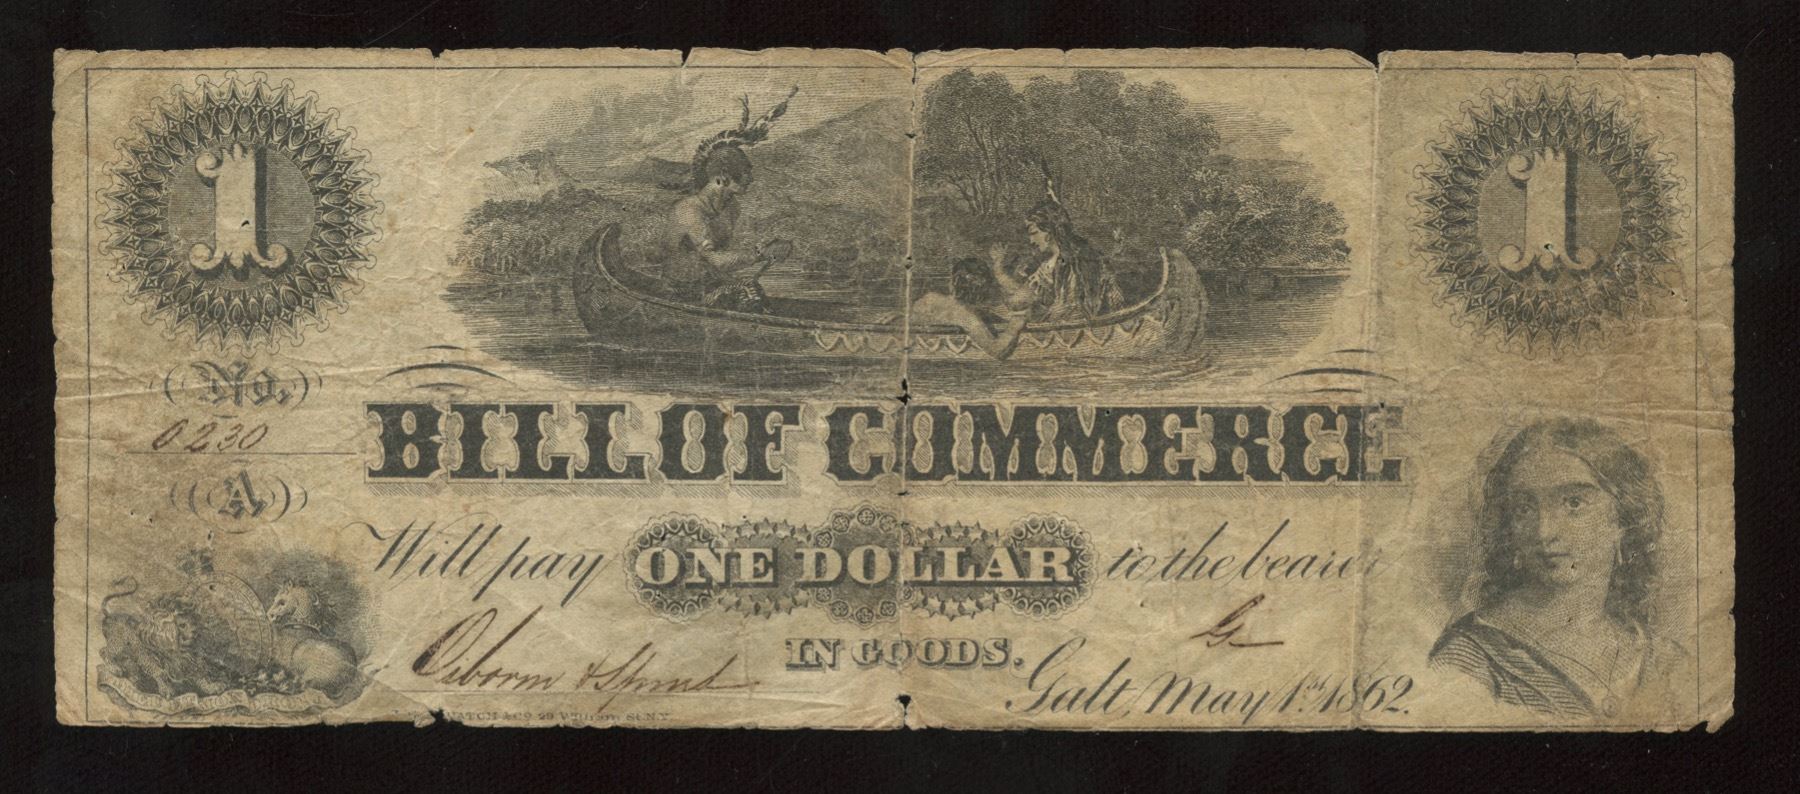 1
1
No.
0230
A
BILL OF COMMERCE
Will pay ONE DOLLAR to the bearer
G
IN GOODS.
Osborn & Sprul
Galt, May 1st 1862.
& Co 29 William St. N.Y.